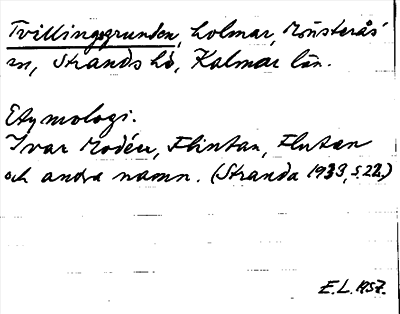 Tvillingsgrunden, holmar, Mönsterås
sn, Stranda hd, Kalmar län.
Etymologi.
Ivar Modéer, Flintan, Flutan
och andra namn. (Stranda 1933, s. 22.)
E.L. 1957.